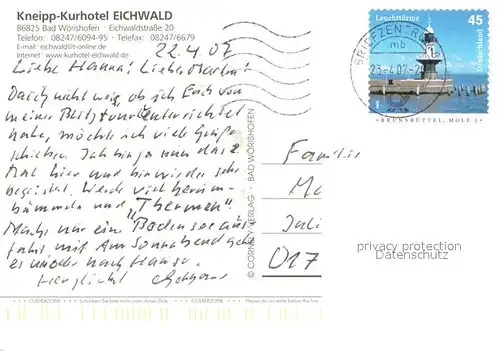 Kneipp-Kurhotel EICHWALD
86825 Bad Wörishofen · Eichwaldstraße 20
Telefon: 08247/6094-95 · Telefax: 08247/6679
E-mail: eichwald@t-online.de
Internet: www.kurhotel-eichwald.de
22.4.07
Liebe Hanna! Lieber
Da ich nicht weiß, ob ich Euch von
meiner Blitztour unterrichtet
habe, möchte ich viele Grüße
schicken. Ich bin ja nun das 2.
Mal hier und bin wieder sehr
begeistert. Werde viel herum-
bummeln und "Thermen".
Mache nur eine Bodenseeaus
fahrt mit. Am Sonnabend geht
es wieder nach Hause.
Herzlichst
CODIERZONE · Schreiben Sie bitte nicht unter dieser Zeile. CODERZONE · Please do not write below this line.
© CORNELY VERLAG · BAD WÖRISHOFEN
Leuchttürme 45
Deutschland
BRIEFZENTRUM
mb
23.-4.07-2
BRUNSBÜTTEL, MOLE 1
Familie
Ma
Juli
017
privacy protection
Datenschutz